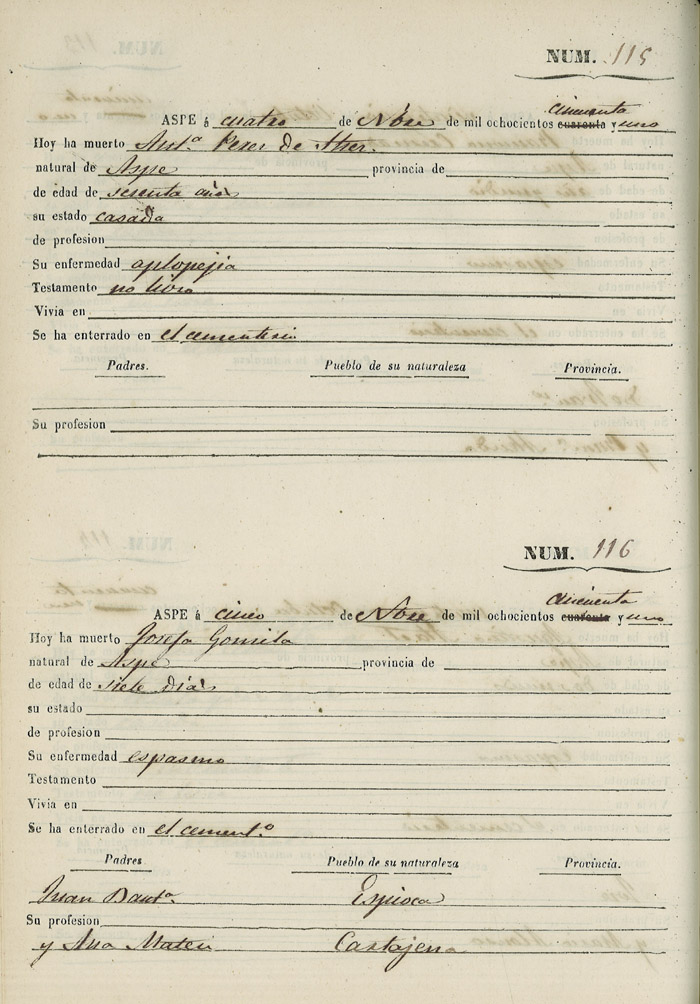 NUM. 115
cincuenta
ASPE á cuatro de Nbre de mil ochocientos cuarenta y uno
Hoy ha muerto Antª Perez de
natural de Aspe provincia de
de edad de sesenta años
su estado casada
de profesion
Su enfermedad aplopejia
Testamento no libro
Vivía en
Se ha enterrado en el cementerio
Padres. Pueblo de su naturaleza Provincia.
Su profesion
NUM. 116
cincuenta
ASPE á cinco de Nbre de mil ochocientos cuarenta y uno
Hoy ha muerto Josefa Gomila
natural de Aspe provincia de
de edad de siete dias
su estado
de profesion
Su enfermedad espasmo
Testamento
Vivia en
Se ha enterrado en el cementº
Padres. Pueblo de su naturaleza Provincia.
Juan Bautª Espioca
Su profesion
y Ana Mateu Cartajena